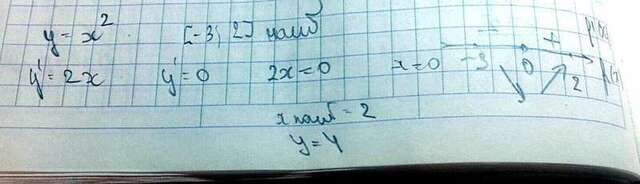 y = x² [-3; 2] наиб
y' = 2x y' = 0 2x = 0 x = 0 -3 - 0 + 2
x наиб = 2
y = 4